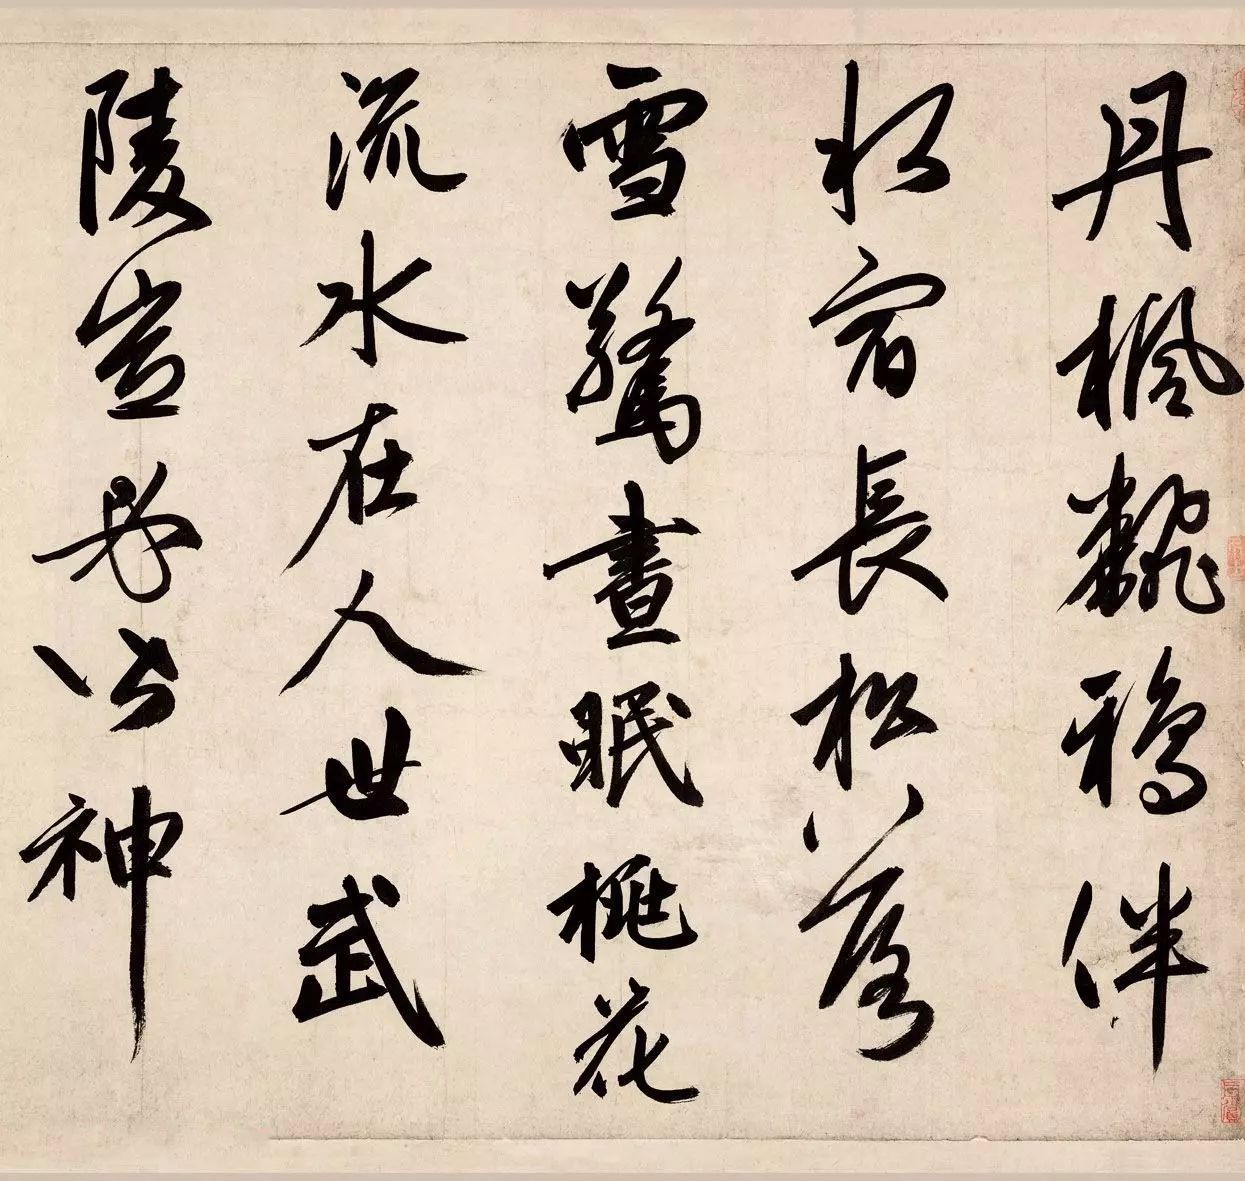 丹楓飜鴉伴
水宿長松落
雪驚晝眠桃花
流水在人世武
陵豈必皆神